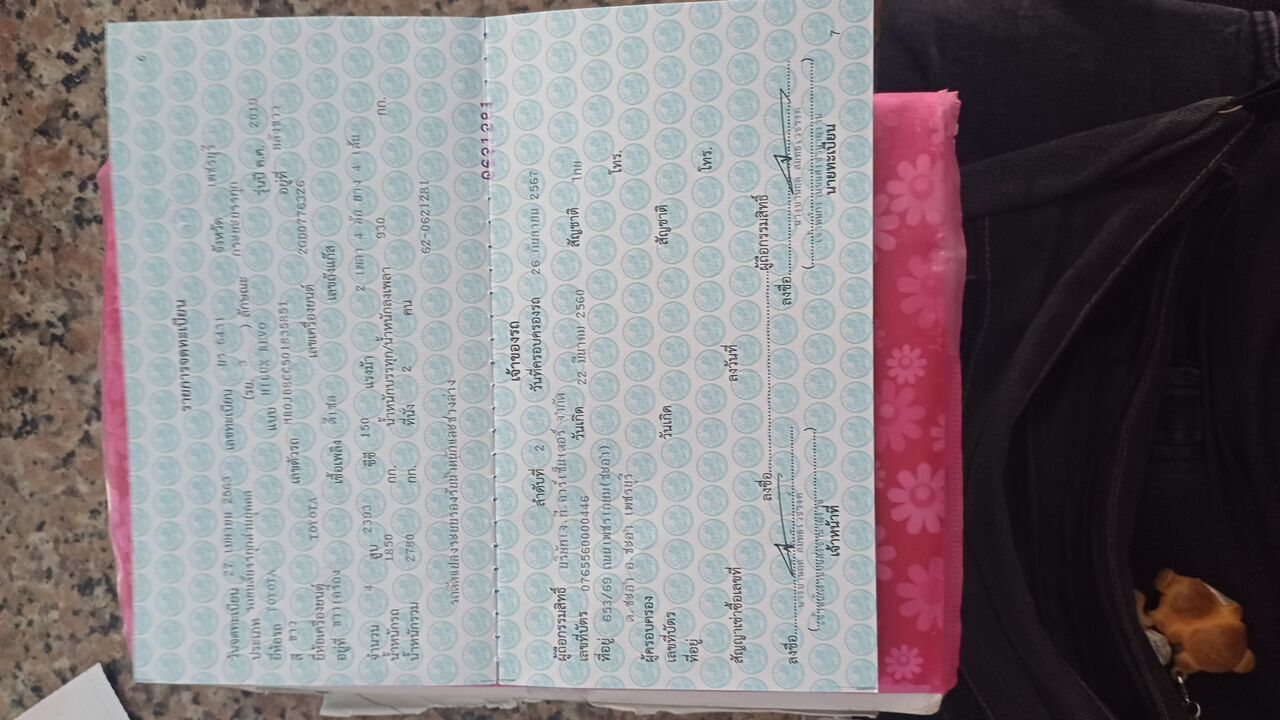 6
รายการจดทะเบียน
วันจดทะเบียน 27 เมษายน 2563 เลขทะเบียน 6431 จังหวัด เพชรบุรี
ประเภท รถยนต์บรรทุกส่วนบุคคล (รย. 3 ) ลักษณะ กระบะบรรทุก
ยี่ห้อรถ TOYOTA แบบ HILUX REVO รุ่นปี ค.ศ. 2019
สี ขาว เลขตัวรถ อยู่ที่ หลังขวา
ยี่ห้อเครื่องยนต์ TOYOTA เลขเครื่องยนต์ 2GD0776326
อยู่ที่ ขวาเครื่อง เชื้อเพลิง ดีเซล เลขถังแก๊ส
จำนวน 4 สูบ 2393 ซีซี 150 แรงม้า 2 เพลา 4 ล้อ ยาง 4 เส้น
น้ำหนักรถ 1850 กก. น้ำหนักบรรทุก/น้ำหนักลงเพลา 930 กก.
น้ำหนักรวม 2780 กก. ที่นั่ง 2 คน
62-0621281
รถดัดแปลงระบบรองรับน้ำหนักและช่วงล่าง
0621281
เจ้าของรถ
ลำดับที่ 2 วันที่ครอบครองรถ 26 กันยายน 2567
ผู้ถือกรรมสิทธิ์ บริษัทเจ.ที.การ์เซ็นเตอร์ จำกัด
เลขที่บัตร 0765560000446 วันเกิด 22 มีนาคม 2560 สัญชาติ ไทย
ที่อยู่ 653/69 ถนนเพชรเกษม(ชะอำ)
ต.ชะอำ อ.ชะอำ เพชรบุรี โทร.
ผู้ครอบครอง
เลขที่บัตร วันเกิด สัญชาติ
ที่อยู่ โทร.
สัญญาเช่าซื้อเลขที่ ลงวันที่
ลงชื่อ ผู้ถือกรรมสิทธิ์
ลงชื่อ ลงชื่อ
เจ้าหน้าที่ นายทะเบียน
7